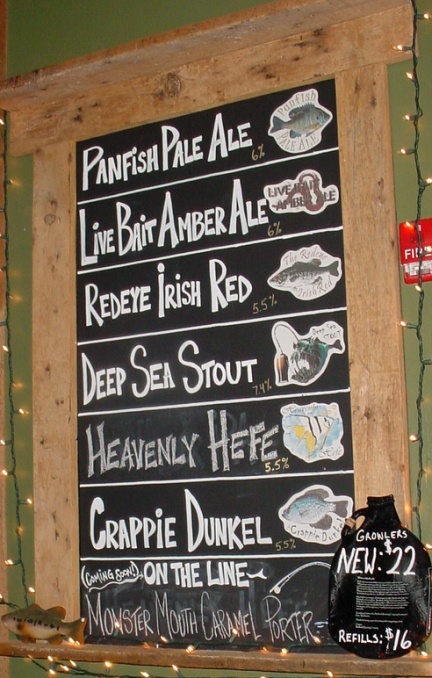 PANFISH PALE ALE
6%
Panfish
PALE ALE
LIVE BAIT AMBER ALE
6%
LIVE BAIT
AMBER ALE
REDEYE IRISH RED
5.5%
The Redeye
Irish Red
DEEP SEA STOUT
7.4%
Deep Sea
STOUT
HEAVENLY HEFE
5.5%
CRAPPIE DUNKEL
5.5%
Crappie Dunkel
(COMING SOON!) ON THE LINE
MONSTER MOUTH CARAMEL PORTER
GROWLERS
NEW: $22
REFILLS: $16
FIRE